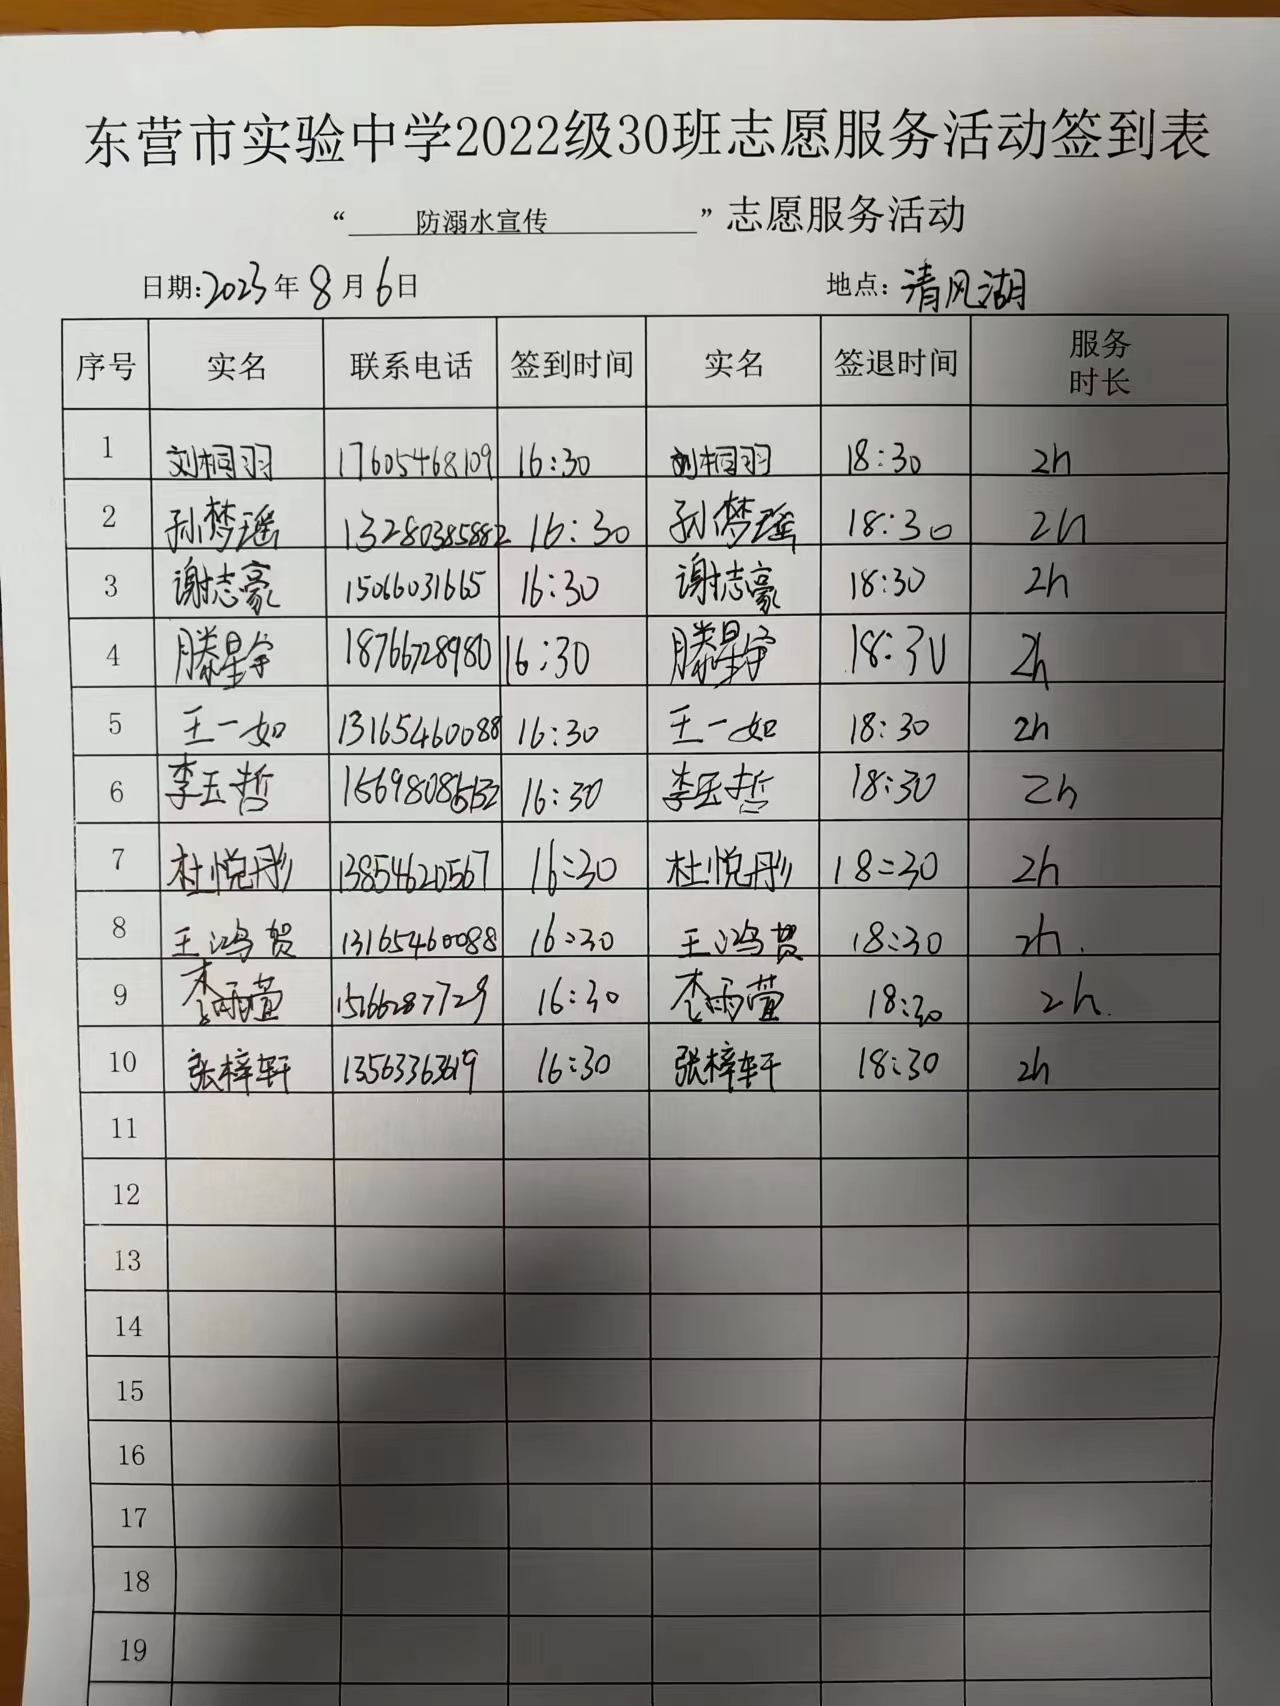 东营市实验中学2022级30班志愿服务活动签到表
“ 防溺水宣传 ”志愿服务活动
日期:2023年8月6日 地点:清风湖
序号 实名 联系电话 签到时间 实名 签退时间 服务时长
1 刘桐羽 17605468109 16:30 刘桐羽 18:30 2h
2 孙梦瑶 13280385882 16:30 孙梦瑶 18:30 2h
3 谢志豪 15066031665 16:30 谢志豪 18:30 2h
4 滕星宇 18766728980 16:30 滕星宇 18:30 2h
5 王一如 13165460088 16:30 王一如 18:30 2h
6 李玉哲 16:30 李玉哲 18:30 2h
7 杜悦彤 13854620567 16:30 杜悦彤 18:30 2h
8 王鸿贺 13165460088 16:30 王鸿贺 18:30 2h.
9 李雨萱 15166287729 16:30 李雨萱 18:30 2h.
10 张梓轩 13563363619 16:30 张梓轩 18:30 2h
11
12
13
14
15
16
17
18
19